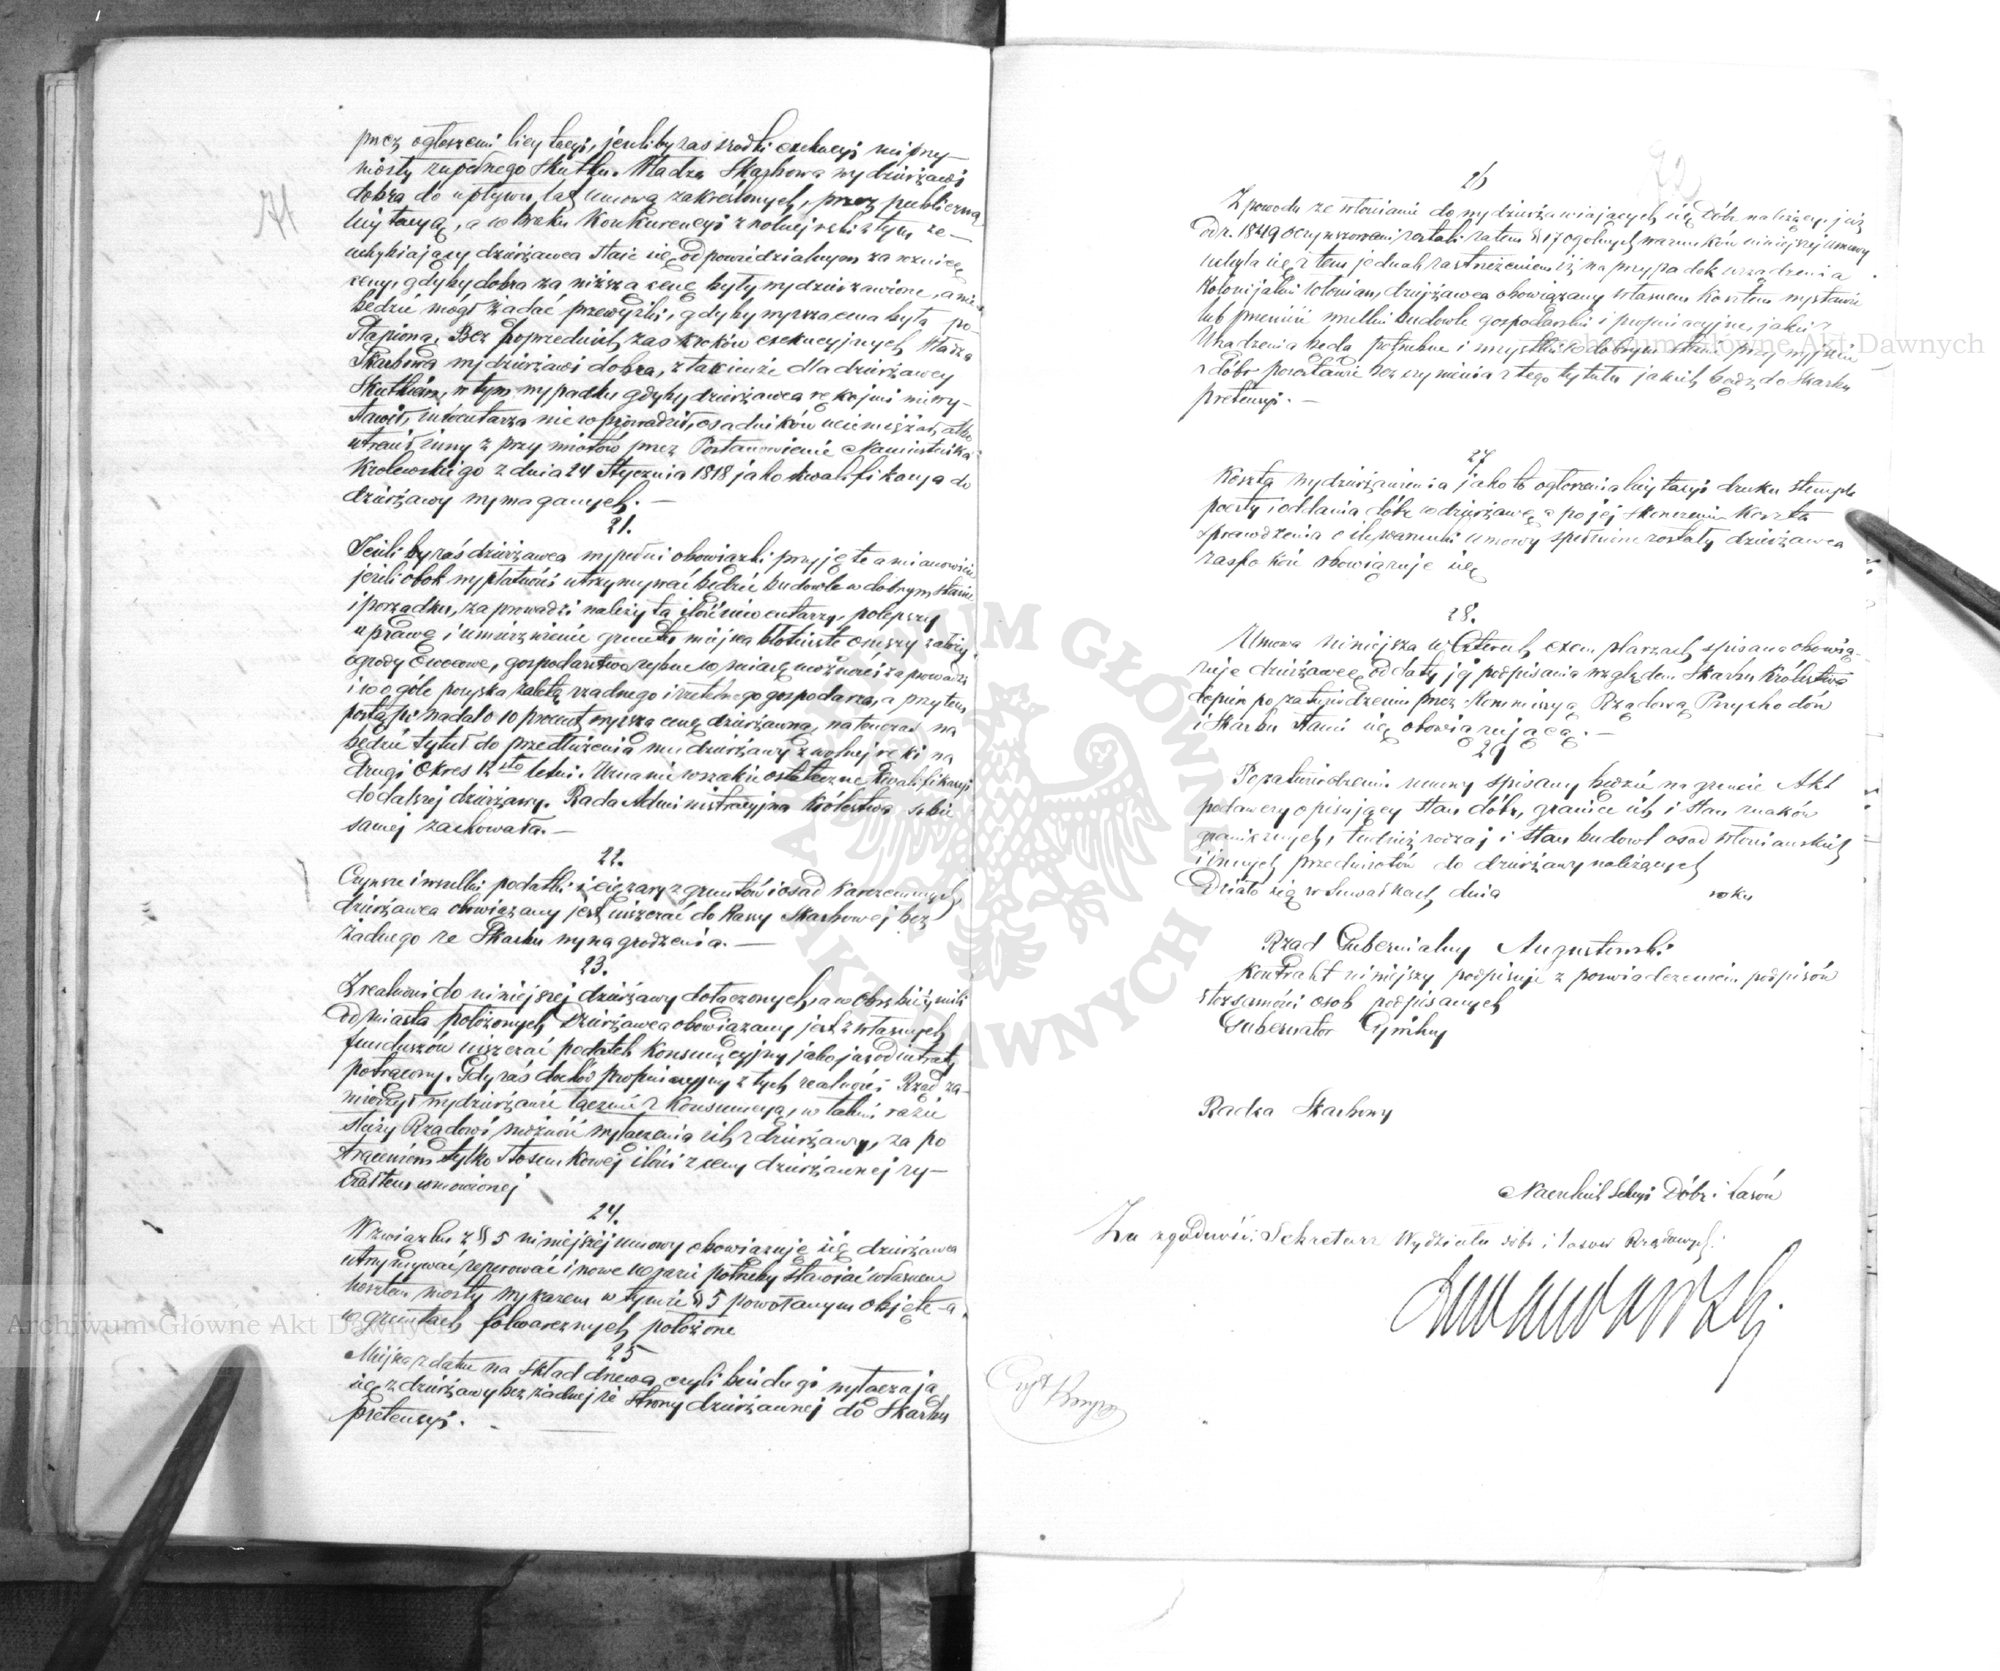 71
przez ogłoszeni licytacyi, jeżeliby zaś środki exekucyi nie przy-
niosły zupełnego skutku. Władza Skarbowa wydzierżawi
dobra do upływu lat umową zakreślonych, przez publiczną
licytacyą, a w braku konkurencyi z wolnej ręki z tym że
uchybiający dzierżawca staje się odpowiedzialnym za różnicę
ceny, gdyby dobra za niższą cenę były wydzierżawione, a nie
będzie mógł żądać przewyżki, gdyby wyższa cena była po-
stąpioną. Bez poprzednich zaś kroków exekucyjnych Władza
Skarbowa wydzierżawi dobra, z takiemże dla dzierżawcy
skutkiem, w tym wypadku gdyby dzierżawca rękojmi nie wy-
stawił, inwentarza nie wprowadził, osadników uciemiężał, albo
utracił inny z przymiotów przez Postanowienie Namiestnika
Królewskiego z dnia 24 Stycznia 1818 jako kwalifikacya do
dzierżawy wymaganych. —
21.
Jeżeli by zaś dzierżawca wypełnił obowiązki przyjęte a mianowicie
jeżeli obok wypłatności utrzymywać będzie budowle w dobrym stanie
i porządku, zaprowadzi należytą ilość inwentarzy, polepszy
uprawę i umierzwienie gruntu miejsca błotniste osuszy założy
ogrody owocowe, gospodarstwo rybne w miarę możności zaprowadzi
i w ogóle pozyska zaletę rządnego i rzetelnego gospodarza, a przytem
postąpi nadal o 10 procent wyższą cenę dzierżawną, natenczas na
będzie tytuł do przedłużenia mu dzierżawy z wolnej ręki na
drugi okres 12sto letni. Uznanie wszakże ostateczne kwalifikacyi
do dalszej dzierżawy. Rada Administracyjna Królestwa sobie
samej zachowała. —
22.
Czynsze i wszelkie podatki i ciężary z gruntów i osad karczemnych
dzierżawca obowiązany jest uiszczać do Kassy Skarbowej bez
żadnego ze Skarbu wynagrodzenia. —
23.
Z realności do niniejszej dzierżawy dołączonych, a w obrębie ½ mili
od miasta położonych Dzierżawca obowiązany jest z własnych
funduszów uiszczać podatek Konsumcyjny jako już od intraty
potrącony. Gdy zaś dochód propinacyjny z tych realności Rząd za-
mierzył wydzierżawić łącznie z Konsumcyą, w takim razie
służy Rządowi możność wyłączenia ich z dzierżawy, za po
trąceniem tylko stosunkowej ilości z ceny dzierżawnej ry-
czałtem umówionej
24.
W związku z § 5 niniejszej umowy obowiązuje się dzierżawca
utrzymywać reperować i nowe w razie potrzeby stawiać własnem
kosztem mosty wykazem w tymże § 5 powołanym objęte a
w gruntach folwarcznych położone
25
Miejsca zdatne na skład drzewa, czyli bindugi wyłączają
się z dzierżawy bez żadnej ze strony dzierżawnej do Skarbu
pretensyi. —
72
26
Z powodu że włościanie do wydzierżawiających się Dóbr należący, już
od r. 1849 oczynszowani zostali zatem § 17 ogólnych warunków niniejszej umowy
uchyla się z tem jednak zastrzeżeniem iż na przypadek urządzenia
kolonijalnie włościan, dzierżawca obowiązany własnem kosztem wystawić
lub przenieść wszelkie budowle gospodarskie i propinacyjne, jakie z
Urządzenia będą potrzebne i wszystkie w dobrym stanie przy wyjściu
z dóbr pozostawić bez czynienia z tego tytułu jakich bądź do Skarbu
pretensyi. —
27
Koszta wydzierżawienia jako to ogłoszenia licytacyi druku stempla
poczty i oddania dóbr w dzierżawę, a po jej skończeniu Koszta
sprawdzenia o ile warunki umowy spełnione zostały dzierżawca
zaspokoić obowiązuje się
28.
Umowa niniejsza w czterech exemplarzach spisana obowią-
zuje dzierżawcę od daty jej podpisania względem Skarbu Królestwa
dopiero po zatwierdzeniu przez Kommissyą Rządową Przychodów
i Skarbu stanie się obowiązującą. —
29
Po zatwierdzeniu umowy spisany będzie na gruncie Akt
podawczy opisujący stan dóbr, granice ich i stan znaków
granicznych, tudzież rodzaj i stan budowl osad włościańskich
i innych przedmiotów do dzierżawy należących
Działo się w Suwałkach, dnia roku
Rząd Gubernialny Augustowski
Kontrakt niniejszy podpisuje z poświadczeniem podpisów
i tożsamości osób podpisanych
Gubernator Cywilny
Radca Skarbowy
Naczelnik Sekcyi Dóbr i Lasów
Za zgodność: Sekretarz Wydziału dóbr i lasów Rządowych:
Archiwum Główne Akt Dawnych
Archiwum Główne Akt Dawnych
ARCHIWUM GŁÓWNE AKT DAWNYCH